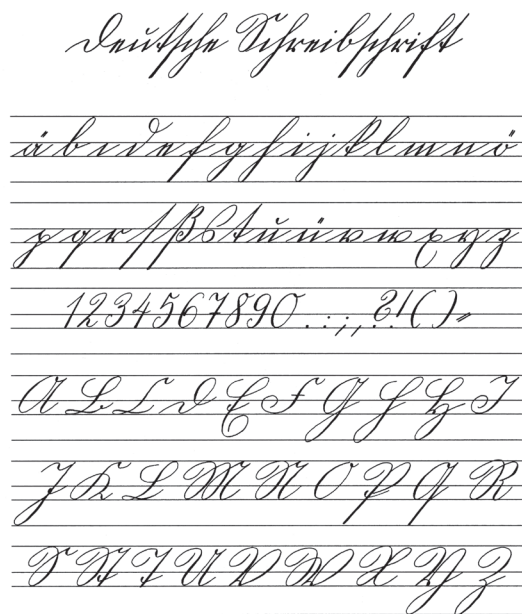 Deutsche Schreibschrift
ä b c d e f g h i j k l m n ö
p q r ſ ß s t u ü v w x y z
1234567890 . : ; , ? ! ( ) =
A B C D E F G H H I
J K L M N O P Q R
S St T U V W X Y Z